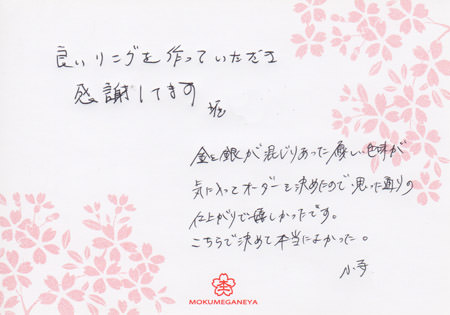 良いリングを作っていただき
感謝してます
堀
金と銀が混じりあった優しい色味が
気に入ってオーダーを決めたので思った通りの
仕上がりで嬉しかったです。
こちらで決めて本当によかった。
小寺
MOKUMEGANEYA